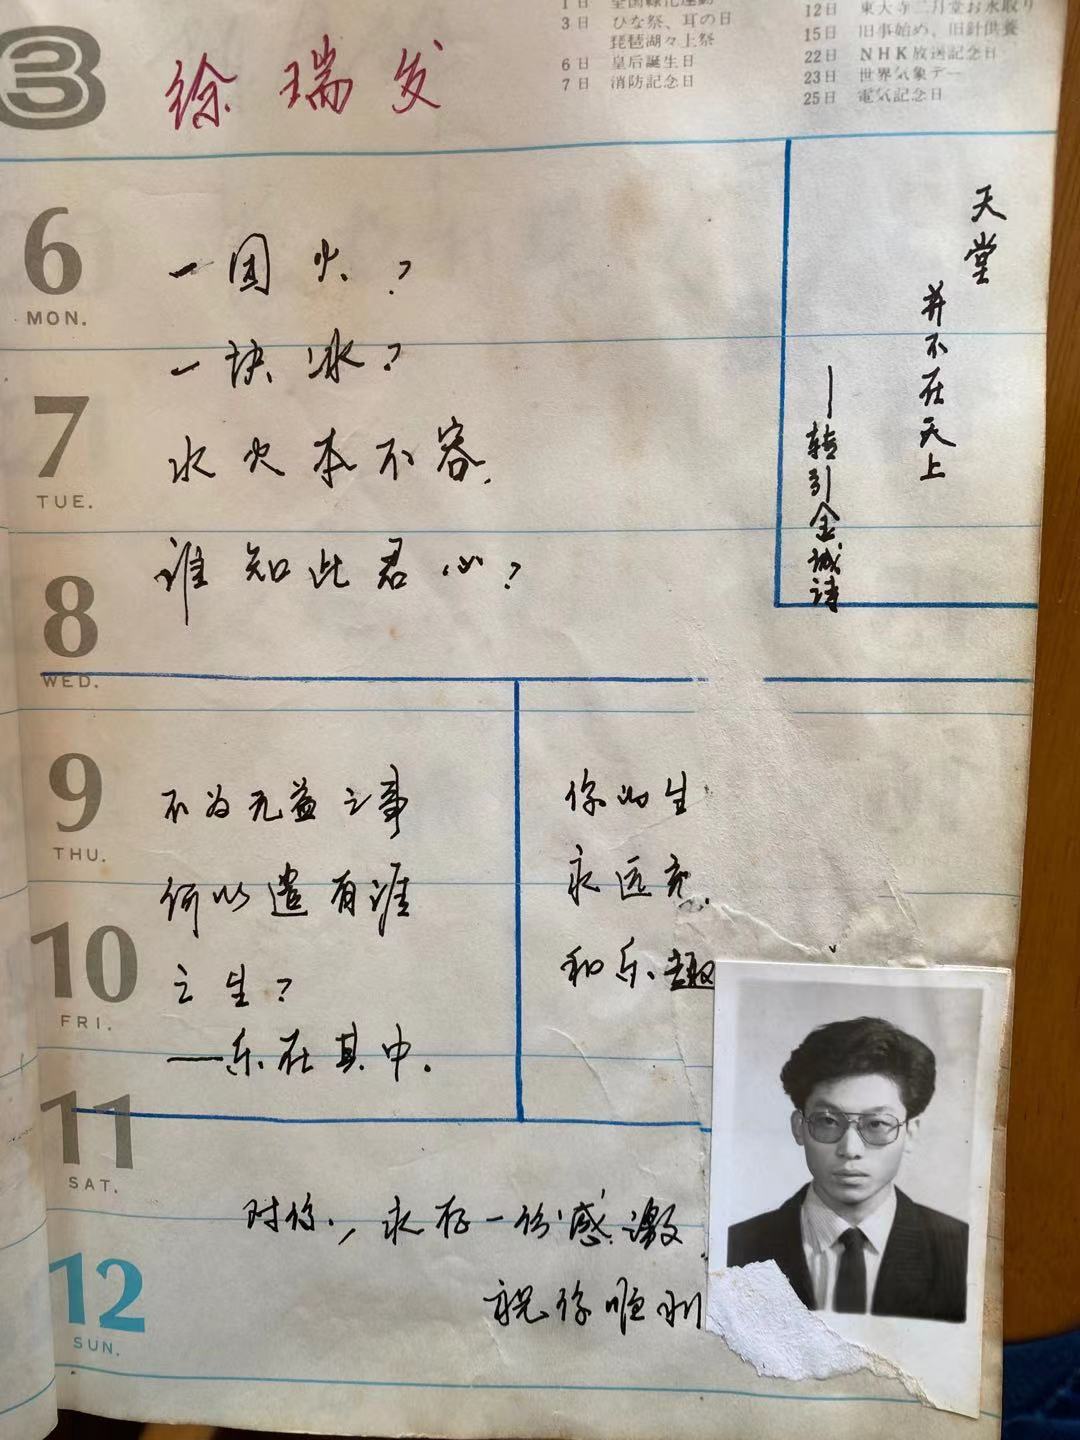 3
徐瑞发
1日 全国緑化運動
3日 ひな祭、耳の日
琵琶湖々上祭
6日 皇后誕生日
7日 消防記念日
12日 東大寺二月堂お水取り
15日 旧事始め、旧針供養
22日 NHK放送記念日
23日 世界気象デー
25日 電気記念日
6
MON.
7
TUE.
8
WED.
9
THU.
10
FRI.
11
SAT.
12
SUN.
一团火?
一块冰?
水火本不容.
谁知此君心?
天堂
并不在天上
——转引金城诗
不为无益之事
何以遣有涯
之生?
——乐在其中.
你的生
永远充
和乐趣
对你,永存一份感激.
祝你顺利